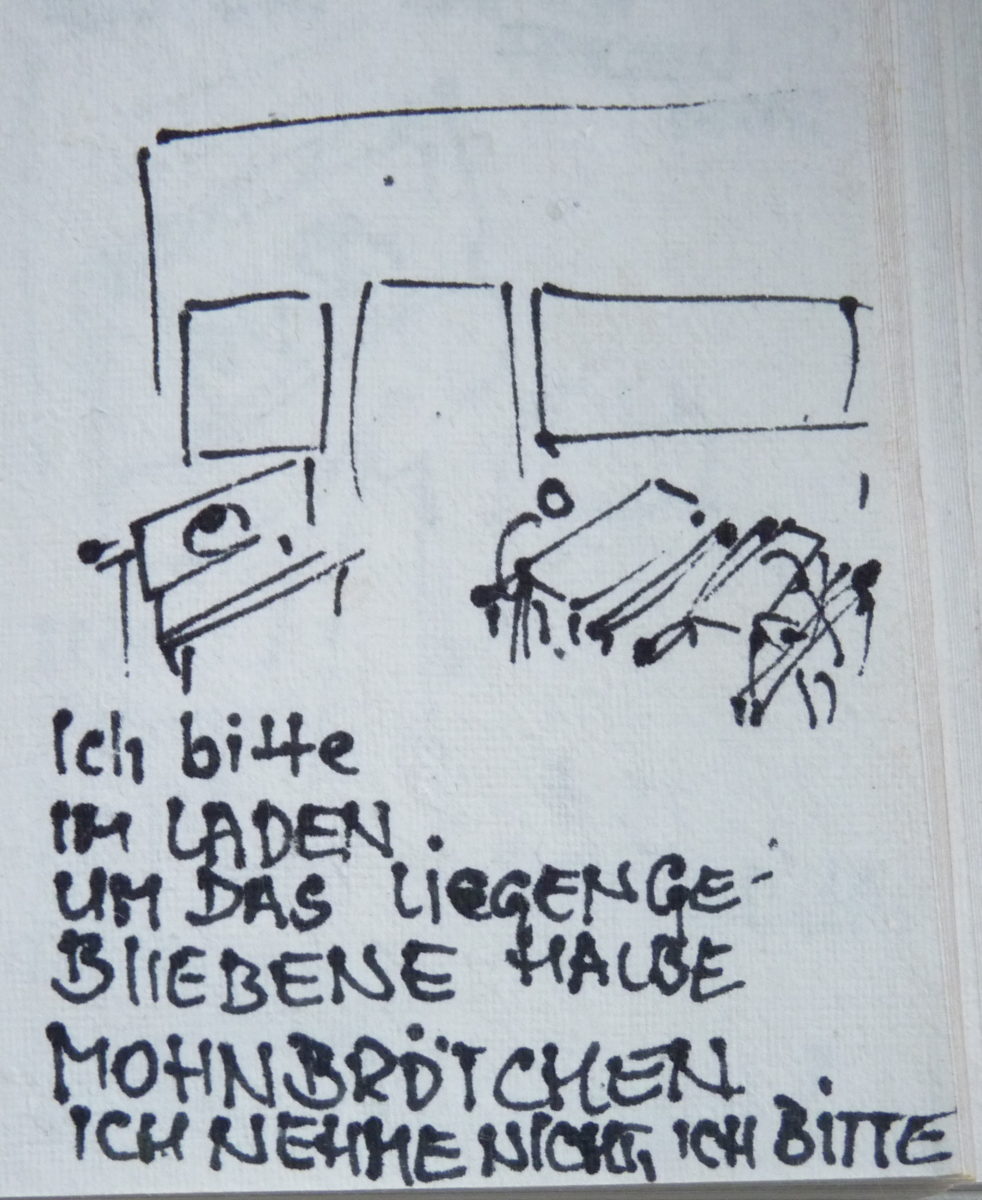 Ich bitte
IM LADEN.
UM DAS LIEGENGE-
BLIEBENE HALBE
MOHNBRÖTCHEN
ICH NEHME NICHT, ICH BITTE